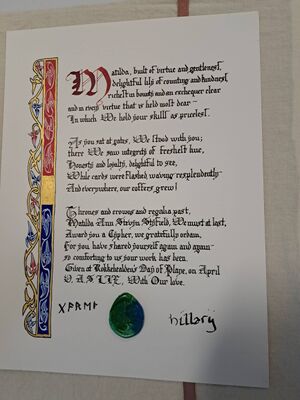 Matilda, built of virtue and gentleness,
delightful lily of counting and kindness,
richest in bounty and an exchequer clear
and in every virtue that is held most dear -
In which We hold your skill as priceless.
As you sat at gates, We stood with you;
there We saw integrity of freshest hue,
Honesty and loyalty, delightful to see,
While cards were flashed waving resplendently -
And everywhere, our coffers grew!
Thrones and crowns and regalia past,
Matilda Ann We must at last,
Award you a Cypher, we gratefully ordain,
For you have shared yourself again and again -
so comforting to us your work has been.
Given at Day of on April
V, A.S. LIX, With Our love.
Hillary